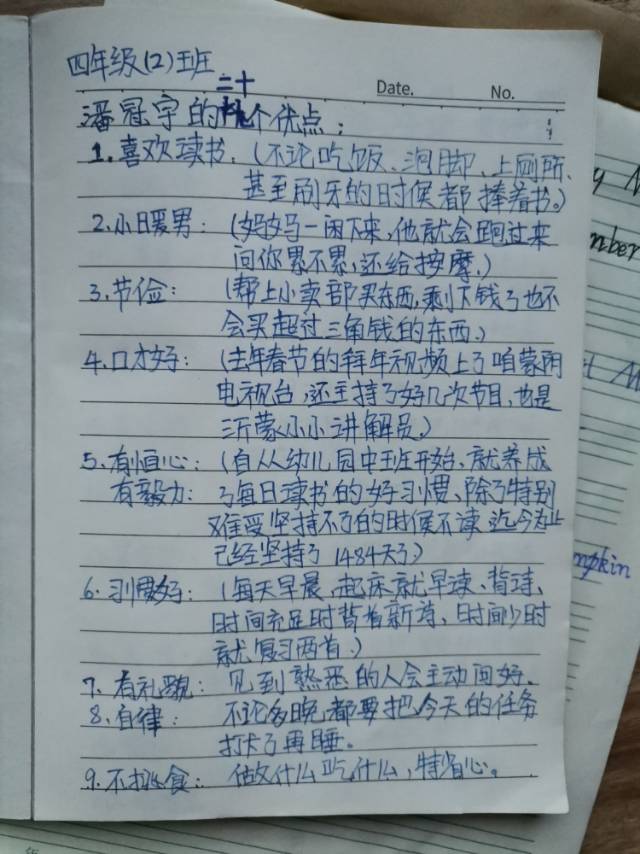 四年级(2)班
Date. No.
潘冠宇的二十个优点：
1.喜欢读书.(不论吃饭、泡脚、上厕所、
甚至刷牙的时候都捧着书。)
2.小暖男：(妈妈一闲下来,他就会跑过来
问你累不累,还给按摩.)
3.节俭：(帮上小卖部买东西,剩下钱了也不
会买超过三角钱的东西.)
4.口才好：(去年春节的拜年视频上了咱蒙阴
电视台,还主持了好几次节目,也是
沂蒙小小讲解员.)
5.有恒心：(自从幼儿园中班开始,就养成
有毅力：了每日读书的好习惯、除了特别
难受坚持不了的时候不读 迄今为止
已经坚持了1484天了)
6.习惯好：(每天早晨,起床就早读、背诗、
时间充足时背首新诗,时间少时
就复习两首.)
7.有礼貌：见到熟悉的人会主动问好.
8.自律：不论多晚都要把今天的任务
打卡了再睡.
9.不挑食：做什么吃什么,特省心。
mber
mpkin